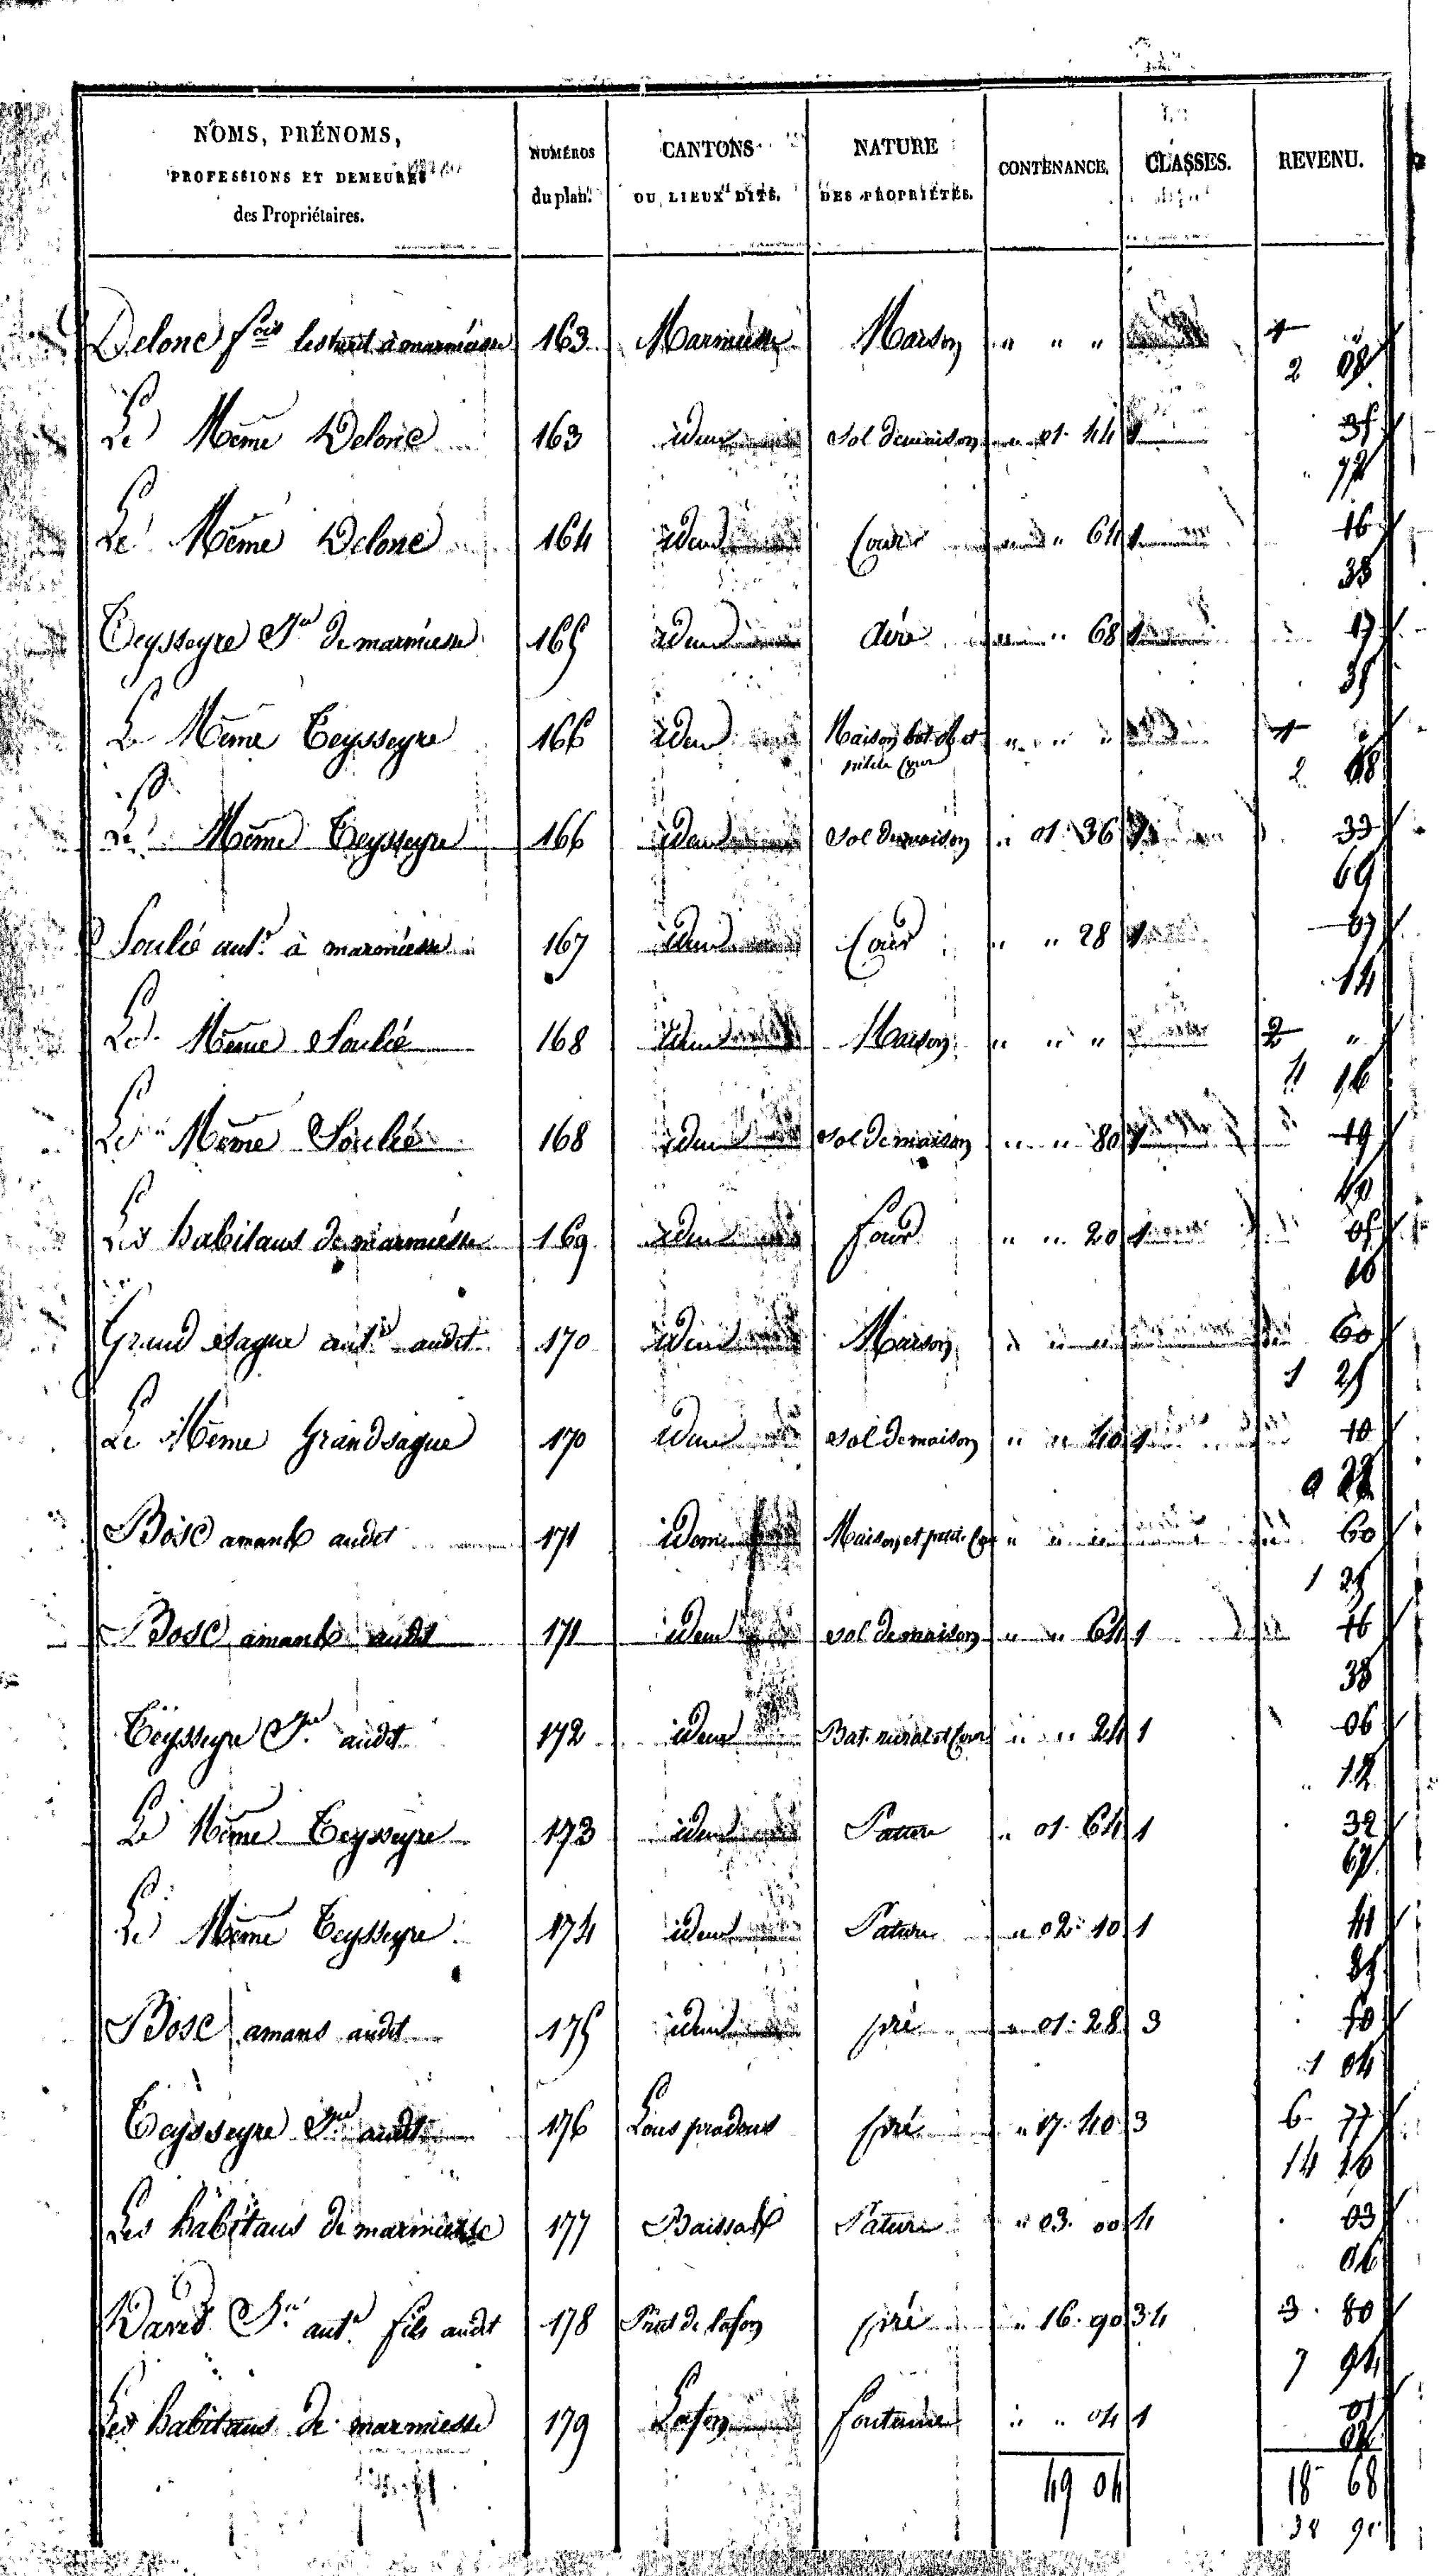 NOMS, PRÉNOMS, PROFESSIONS ET DEMEURES des Propriétaires. NUMÉROS du plan. CANTONS OU LIEUX DITS. NATURE DES PROPRIÉTÉS. CONTENANCE. CLASSES. REVENU.
Delone fois à marmiesse 163 Marmiesse Maison " " " 1 "
2 08
Le Même Delone 163 idem Sol de maison " 01 44 1 35
72
Le Même Delone 164 idem Cour " " 64 1 16
33
Teysseyre Jn de marmiesse 165 idem aire " " 68 1 17
35
Le Même Teysseyre 166 idem Maison bat et petite Cour " " " 1 "
2 08
Le Même Teysseyre 166 idem Sol de maison " 01 36 1 33
69
Soulié ante à marmiesse 167 idem Cour " " 28 1 07
14
Le Même Soulié 168 idem Maison " " " 2 "
4 16
Le Même Soulié 168 idem Sol de maison " " 80 1 19
40
Les habitans de marmiesse 169 idem four " " 20 1 05
10
Grand sagne ante audit 170 idem Maison " " " 60
1 25
Le Même Grandsagne 170 idem Sol de maison " " 40 1 10
Bosc amans audit 171 idem Maison et petite Cour " " " 60
1 25
Bosc amans audit 171 idem Sol de maison " " 64 1 16
33
Teysseyre Jn audit 172 idem Bat. rural et Cour " " 24 1 06
12
Le Même Teysseyre 173 idem Pature " 01 64 1 32
67
Le Même Teysseyre 174 idem Pature " 02 10 1 41
85
Bosc amans audit 175 idem pré " 01 28 3 50
1 04
Teysseyre Jn audit 176 Lous pradous pré " 17 40 3 6 77
14 10
Les habitans de marmiesse 177 Pature " 03 00 4 03
06
David Jn ante fils audit 178 Prat de lafon pré " 16 90 3 4 3 80
7 94
Les habitans de marmiesse 179 Lafon fontaine " " 04 1 01
02
49 04 18 68